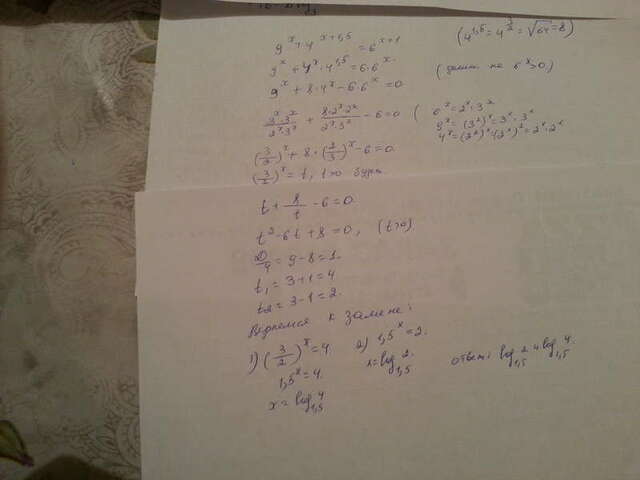 9^x + 4^(x+1,5) = 6^(x+1) (4^1,5 = 4^(3/2) = √64 = 8)
9^x + 4^x · 4^1,5 = 6 · 6^x (делим на 6^x > 0)
9^x + 8 · 4^x - 6 · 6^x = 0
3^x · 3^x / 2^x · 3^x + 8 · 2^x · 2^x / 2^x · 3^x - 6 = 0 ( 6^x = 2^x · 3^x
9^x = (3²)^x = 3^x · 3^x
4^x = (2²)^x = (2^x)² = 2^x · 2^x
(3/2)^x + 8 · (2/3)^x - 6 = 0
(3/2)^x = t, t > 0
t + 8/t - 6 = 0
t² - 6t + 8 = 0, (t>0)
D/4 = 9 - 8 = 1.
t₁ = 3 + 1 = 4
t₂ = 3 - 1 = 2.
Вернемся к замене:
1) (3/2)^x = 4. 2) 1,5^x = 2.
1,5^x = 4. x = log_1,5 2.
x = log_1,5 4
ответ: log_1,5 2 и log_1,5 4.